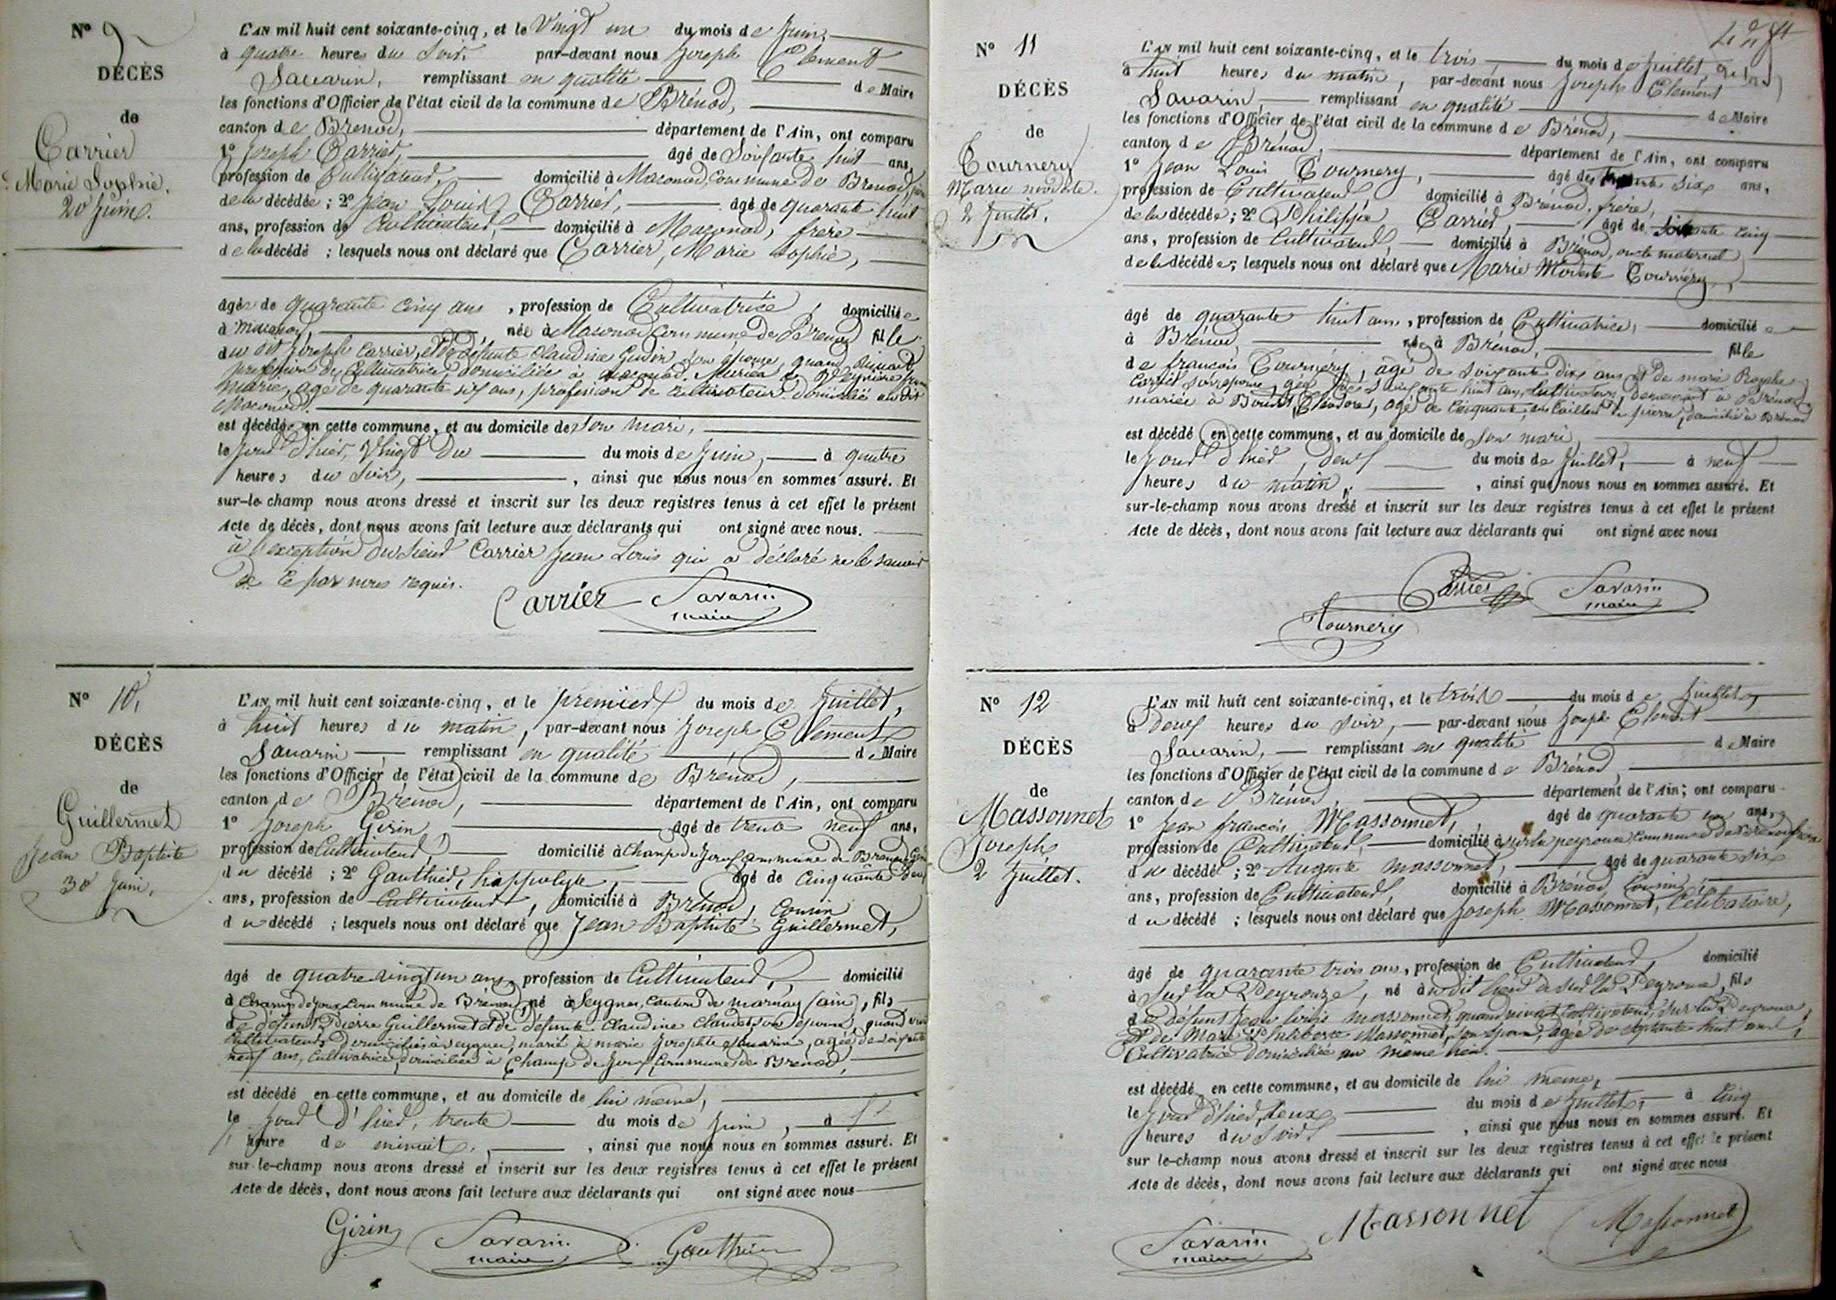 N° 9
DÉCÈS
de
Carrier
Marie Sophie.
20 Juin.
L'AN mil huit cent soixante-cinq, et le Vingt un du mois de Juin,
à quatre heures du Soir, par-devant nous Joseph Clement
Savarin, remplissant en qualité de Maire
les fonctions d'Officier de l'état civil de la commune de Brénod,
canton de Brenod, département de l'Ain, ont comparu
1° Joseph Carrier, âgé de Soixante huit ans,
profession de Cultivateur, domicilié à Maconod, Commune de Brenod,
de la décédée ; 2° Jean Louis Carrier, âgé de quarante huit
ans, profession de Cultivateur, domicilié à Maconod, frere
de la décédé ; lesquels nous ont déclaré que Carrier, Marie Sophie,
âgée de quarante cinq ans, profession de Cultivatrice, domiciliée
à Maconod, née à Maconod Commune de Brenod fille
du dit Joseph Carrier, et de défunte Claudine Son épouse, quand vivait
profession de Cultivatrice, domiciliée à Maconod,
Marie, agé de quarante six ans, profession de cultivateur, domicilié au dit
Maconod.
est décédée en cette commune, et au domicile de Son mari,
le Jour d'hier, Vingt du du mois de Juin, à quatre
heures du Soir, , ainsi que nous nous en sommes assuré. Et
sur-le-champ nous avons dressé et inscrit sur les deux registres tenus à cet effet le présent
Acte de décès, dont nous avons fait lecture aux déclarants qui ont signé avec nous.
à l'exception du Sieur Carrier Jean Louis qui a déclaré ne le savoir
de ce par nous requis.
Carrier Savarin
maire
N° 10,
DÉCÈS
de
Guillermet
Jean Baptiste
30 Juin.
L'AN mil huit cent soixante-cinq, et le premier du mois de Juillet,
à huit heures du matin, par-devant nous Joseph Clement
Savarin, remplissant en qualité de Maire
les fonctions d'Officier de l'état civil de la commune de Brénod,
canton de Brénod, département de l'Ain, ont comparu
1° Joseph Girin, âgé de trente neuf ans,
profession de Cultivateur, domicilié à Champ de Joux Commune de Brenod
du décédé ; 2° Gauthier, hippolyte, âgé de Cinquante deux
ans, profession de Cultivateur, domicilié à Brénod, Cousin
du décédé ; lesquels nous ont déclaré que Jean Baptiste Guillermet,
âgé de quatre vingt un ans, profession de Cultivateur, domicilié
à Champ de Joux Commune de Brenod, né à Seygnes, Canton de (ain), fils
de défunt Pierre Guillermet et de défunte Claudine Claudet son épouse, quand vivait
Cultivateurs, domiciliés à Seygnes, marié à marie Josephte Savarin, agée de soixante
neuf ans, Cultivatrice, domiciliée à Champ de Joux Commune de Brénod,
est décédé en cette commune, et au domicile de lui même,
le Jour d'hier, trente du mois de Juin, à
heure de minuit, , ainsi que nous nous en sommes assuré. Et
sur-le-champ nous avons dressé et inscrit sur les deux registres tenus à cet effet le présent
Acte de décès, dont nous avons fait lecture aux déclarants qui ont signé avec nous
Girin Savarin Gauthier
maire
N° 11
DÉCÈS
de
Tournery
Marie modeste.
2 Juillet.
L'AN mil huit cent soixante-cinq, et le trois du mois de Juillet,
à huit heures du matin, par-devant nous Joseph Clément
Savarin, remplissant en qualité de Maire
les fonctions d'Officier de l'état civil de la commune de Brénod,
canton de Brénod, département de l'Ain, ont comparu
1° Jean Louis Tournery, âgé de six ans,
profession de Cultivateur domicilié à Brénod, frère,
de la décédée ; 2° Philippe Carrier, âgé de soixante cinq
ans, profession de Cultivateur, domicilié à Brénod, oncle maternel
de la décédée ; lesquels nous ont déclaré que Marie Modeste Tournery,
âgé de quarante huit ans, profession de Cultivatrice, domiciliée
à Brénod, née à Brénod, fille
de françois Tournery, agé de soixante dix ans et de marie
Carrier son épouse, agée de soixante huit ans, Cultivateurs, demeurant à Brénod,
mariée à , agé de Cinquante ans tailleur de pierre, domicilié à Brénod
est décédé en cette commune, et au domicile de Son mari,
le Jour d'hier, deux du mois de Juillet, à neuf
heures du matin, , ainsi que nous nous en sommes assuré. Et
sur-le-champ nous avons dressé et inscrit sur les deux registres tenus à cet effet le présent
Acte de décès, dont nous avons fait lecture aux déclarants qui ont signé avec nous
Carrier Savarin
maire
Tournery
N° 12
DÉCÈS
de
Massonnet
Joseph
2 Juillet.
L'AN mil huit cent soixante-cinq, et le trois du mois de Juillet,
à deux heures du Soir, par-devant nous Joseph Clement
Savarin, remplissant en qualité de Maire
les fonctions d'Officier de l'état civil de la commune de Brénod,
canton de Brénod, département de l'Ain ; ont comparu
1° Jean françois Massonnet, âgé de quarante un ans,
profession de Cultivateur domicilié à sur la peyrouse Commune de Brenod frère
du décédé ; 2° Auguste massonnet, âgé de quarante six
ans, profession de Cultivateur, domicilié à Brénod, Cousin,
du décédé ; lesquels nous ont déclaré que Joseph Massonnet, Célibataire,
âgé de quarante trois ans, profession de Cultivateur, domicilié
à Sur la Peyrouze, né au dit lieu de Sur la Peyrouse, fils
de défunt Jean Louis massonnet, quand vivait Cultivateur, Sur la Peyrouse,
et de Marie Massonnet, son épouse, agée de septante huit ans,
Cultivatrice domiciliée au meme lieu.
est décédé en cette commune, et au domicile de lui meme,
le Jour d'hier, deux du mois de Juillet, à Cinq
heures du Soir, , ainsi que nous nous en sommes assuré. Et
sur-le-champ nous avons dressé et inscrit sur les deux registres tenus à cet effet le présent
Acte de décès, dont nous avons fait lecture aux déclarants qui ont signé avec nous
Savarin Massonnet Massonnet
maire